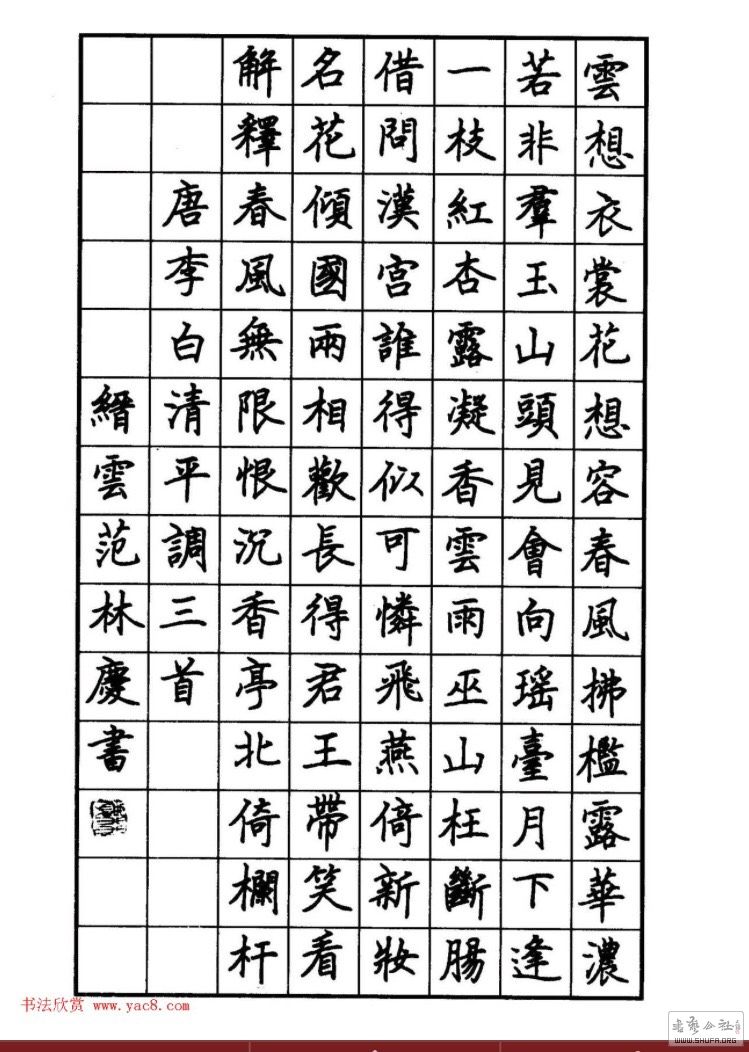 雲想衣裳花想容春風拂檻露華濃
若非羣玉山頭見會向瑶臺月下逢
一枝紅杏露凝香雲雨巫山枉斷腸
借問漢宮誰得似可憐飛燕倚新妝
名花傾國兩相歡長得君王帶笑看
解釋春風無限恨沉香亭北倚欄杆
唐李白清平調三首
縉雲范林慶書
书法欣赏 www.yac8.com
WWW.SHUFA.ORG